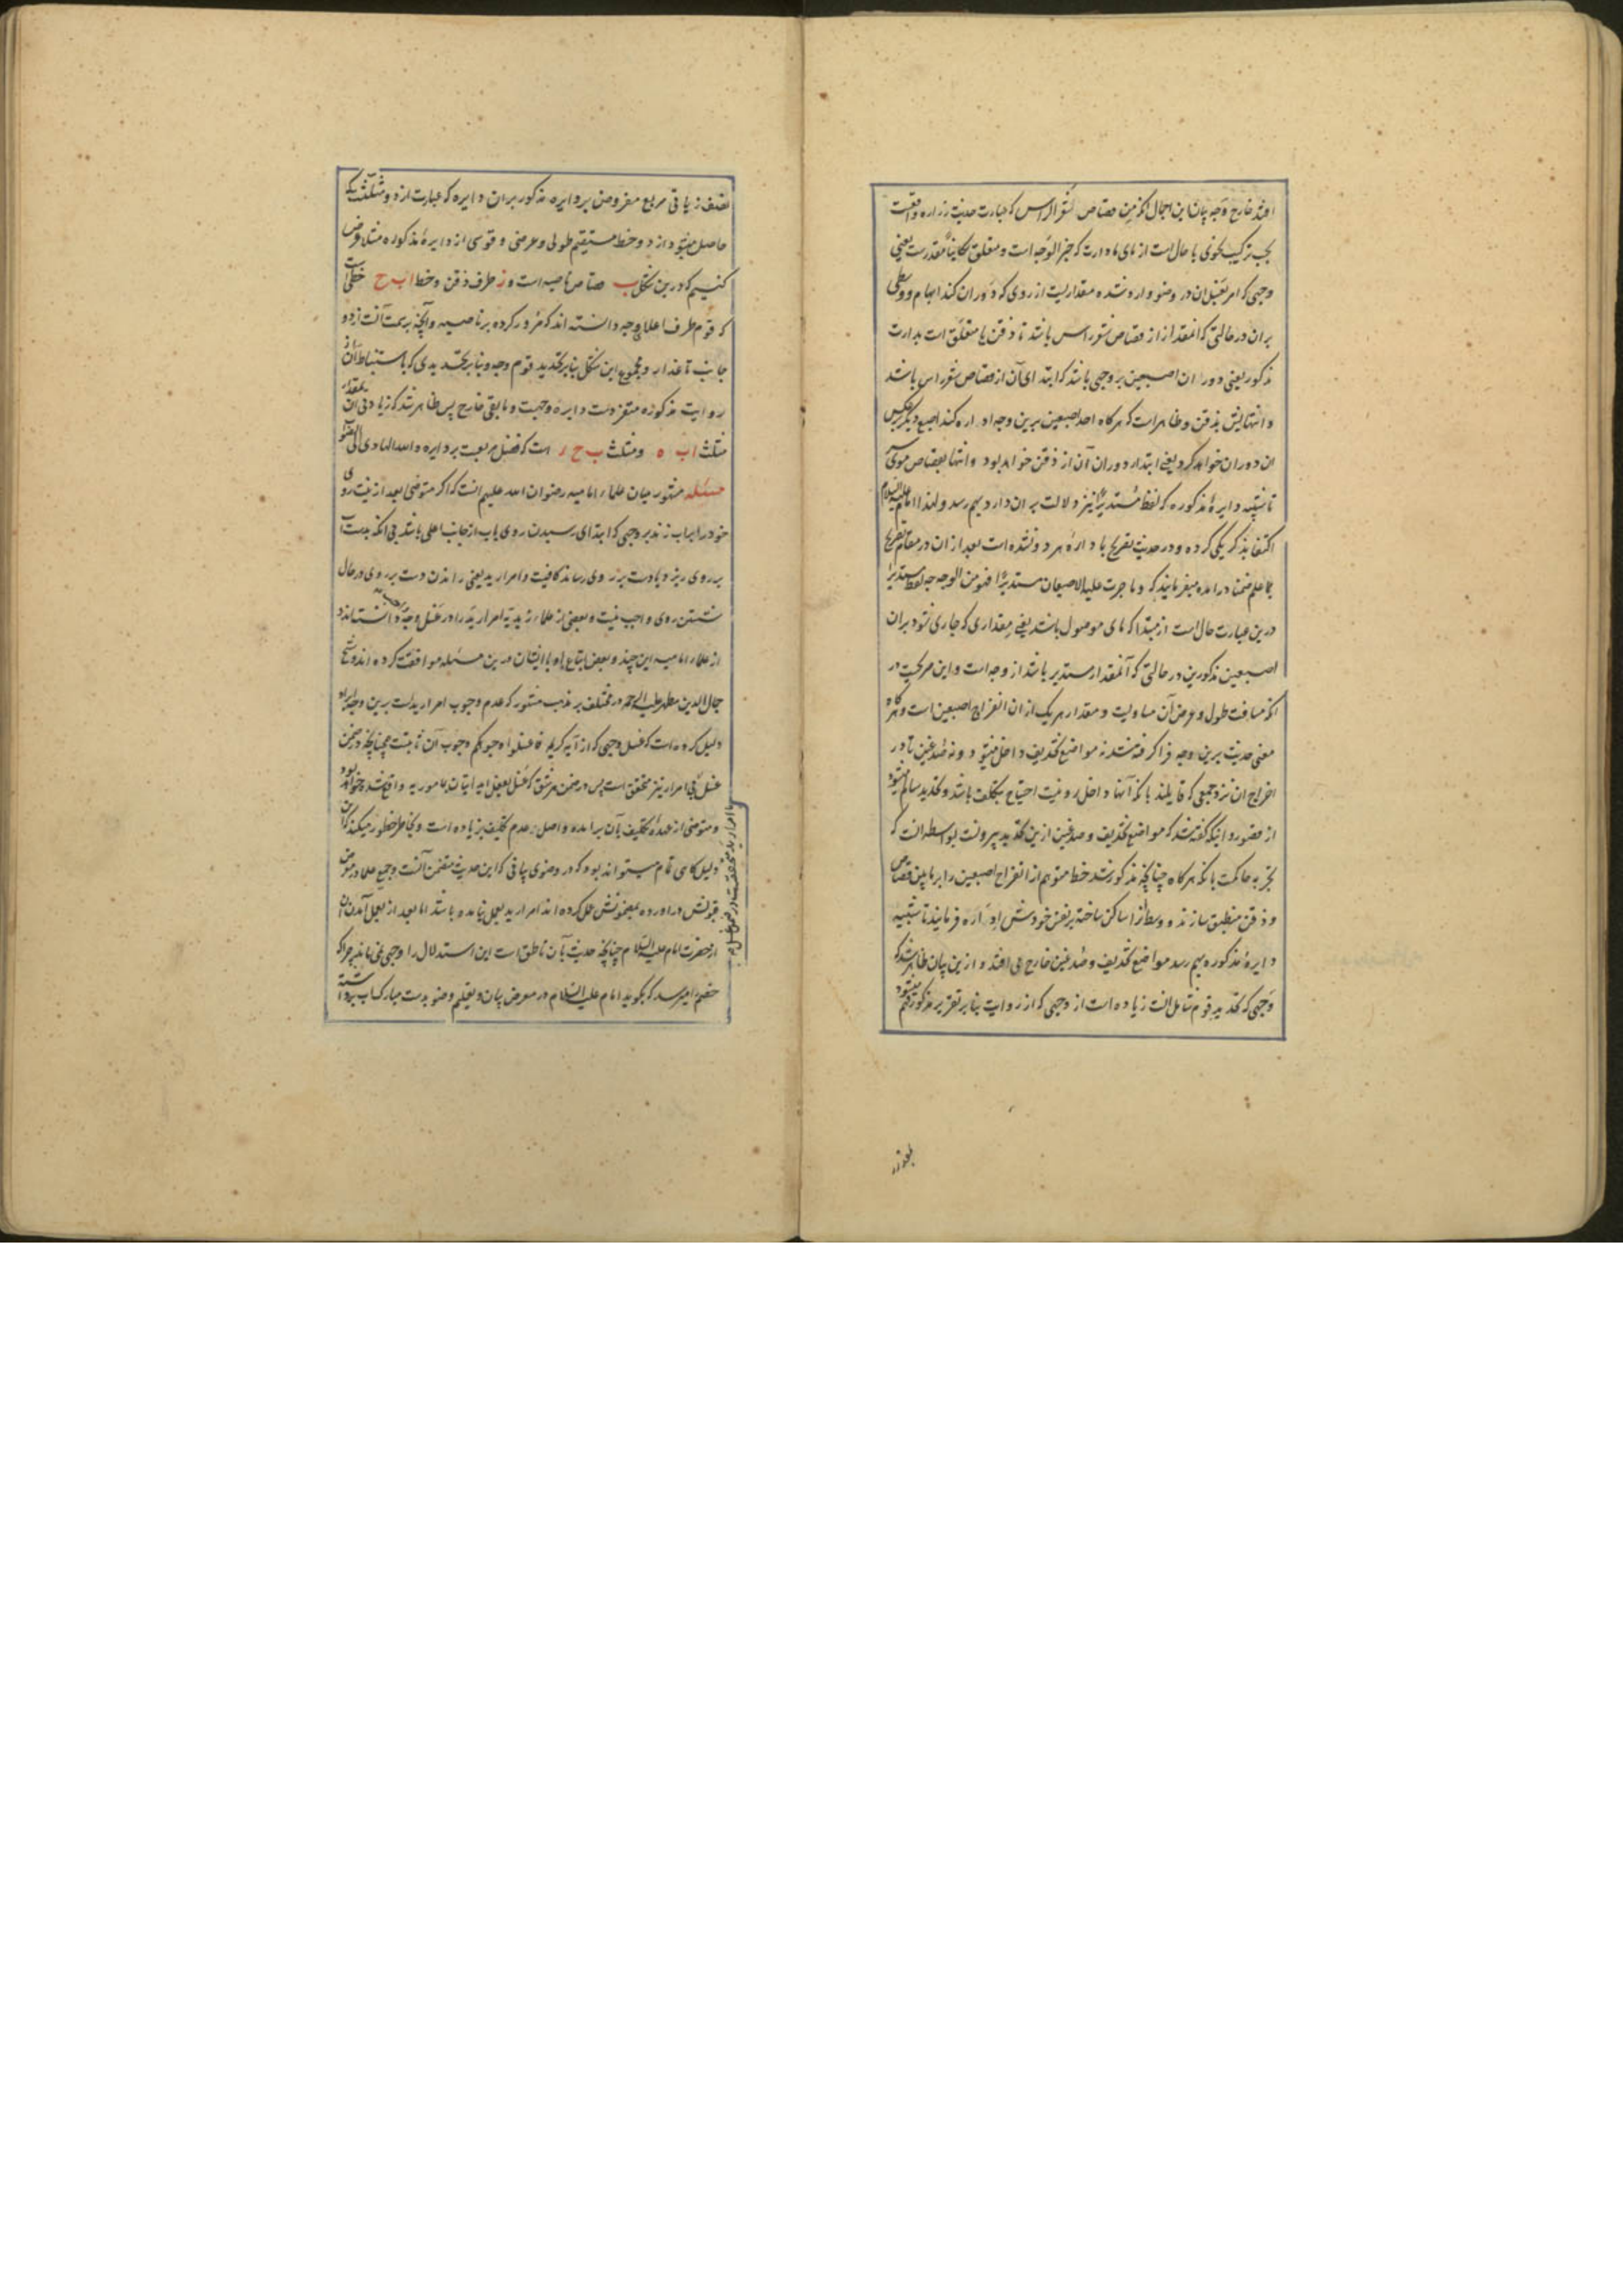 افتد خارج وجه بیان این اجمال آنکه من قصاص شعر الراس که عبارت حدیث زراره واقعست
بحسب ترکیب نحوی یا حال است از مای مادارت که خبر الوجه است و متعلق بکاینا مقدرست یعنی
وجهی که امر بغسل ان در وضو وارد شده مقداریست از روی که دوران کند ابهام و وسطی
بران در حالتی که آنمقدار از قصاص شعر راس باشد تا ذقن یا متعلق است بدارت
مذکور یعنی دوران اصبعین بر وجهی باشد که ابتدای آن از قصاص شعر راس باشد
و انتهایش بذقن و ظاهر است که هرگاه احد اصبعین برین وجه اداره کند اصبع دیگر برعکس
ان دوران خواهد کرد یعنی ابتداء دوران آن از ذقن خواهد بود و انتها بقصاص موی
تا شبیه دایرۀ مذکوره که لفظ مستدیرا نیز دلالت بر ان دارد بهم رسد و لهذا امام علیه السلام
اکتفا بذکر یکی کرده و در حدیث تصریح باداره هر دو نشده است بعد از ان در مقام تصریح
بما علم ضمنا در امده میفرمایند که و ما جرت علیه الاصبعان مستدیرا فهو من الوجه چه لفظ مستدیرا
درین عبارت حال است از مبتدا که مای موصول باشد یعنی مقداری که جاری شود بران
اصبعین مذکورین در حالتی که آنمقدار مستدیر باشد از وجه است و این صریحست در
انکه مسافت طول و عرض آن مساویست و مقدار هر یک از ان انفراج اصبعین است و هرگاه
معنی حدیث برین وجه فرا گرفته شد نه مواضع تحذیف داخل میشود و نه صدغین تا در
اخراج ان نزد جمعی که قایلند بانکه آنها داخل رو نیست احتیاج بتکلف باشد و تحدید سالم میشود
از قصور و اینکه گفته شد که مواضع تحذیف و صدغین ازین تحدید بیرونست بواسطه انست که
تجربه حاکمست بانکه هرگاه چنانچه مذکور شد خط متوهم از انفراج اصبعین را بر مابین قصاص
و ذقن منطبق سازند و وسط انرا ساکن ساخته بر نفس خودش اداره فرمایند تا شبیه
دایرۀ مذکوره بهم رسد مواضع تحذیف و صدغین خارج می افتد و ازین بیان ظاهر شد که
وجهی که تحدید قوم شامل انست زیاده است از وجهی که از روایت بنابر تقریر مذکور فهم میشود
نصف زیاقی مربع مفروض بر دایره مذکور بران دایره که عبارت از دو مثلثست که
حاصل میشود از دو خط مستقیم طولی و عرضی و قوسی از دایرۀ مذکوره مثلا فرض
کنیم که درین شکل ب قصاص ناصیه است و ز طرف ذقن و خط ا ب ح خطی است
که قوم طرف اعلای وجه دانسته اند که مرور کرده بر ناصیه و آنچه بر سمت آنست از دو
جانب تا عذار و مجموع این شکل بنابر تحدید قوم وجه و بنابر تحدیدی که باستنباط آن از
روایت مذکوره متفردست دایره وجهست و مابقی خارج پس ظاهر شد که زیادتی آن بمقدار
مثلث ا ب ه و مثلث ب ح ر است که فضل مربعست بر دایره و الله الهادی الی الصواب
مسئله مشهور میان علماء امامیه رضوان الله علیهم انست که اگر متوضی بعد از نیت روی
خود را بآب زند بر وجهی که ابتدای رسیدن روی بآب از جانب اعلی باشد بی انکه بدست آب
بر روی ریزد یا دست بر روی رساند کافیست و امرار ید یعنی راندن دست بر روی در حال
شستن روی واجب نیست و بعضی از علماء زیدیه امرار ید را در غسل وجه واجب دانسته اند و
از علماء امامیه ابن جنید و بعض اتباع او با ایشان درین مسئله موافقت کرده اند و شیخ
جمال الدین مطهر علیه الرحمه در مختلف بر مذهب مشهور که عدم وجوب امرار یدست برین وجه ایراد
دلیل کرده است که غسل وجهی که از آیه کریمه فاغسلوا وجوهکم وجوب آن ثابتست چنانچه در ضمن
با امرار ید متحققست در ضمن غسل
غسل بی امرار نیز متحقق است پس در ضمن هر شق که غسل بفعل اید ایتان بمامور به واقع شده خواهد بود
و متوضی از عهدۀ تکلیف بآن برامده و اصل عدم تکلیف بزیاده است و بخاطر خطور میکند که این
دلیل کاهی تمام میتواند بود که در وضوی بیانی که این حدیث متضمن آنست و جمیع علما در معرض
قبولش دراورده بمضمونش عمل کرده اند امرار ید بعمل نیامده باشد اما بعد از بعمل آمدن ان
از حضرت امام علیه السلام چنانچه حدیث بآن ناطق است این استدلال را وجهی نمی ماند چرا که
خصم را میرسد که بگوید امام علیه السلام در معرض بیان و تعلیم وضو بدست مبارک آب برداشته